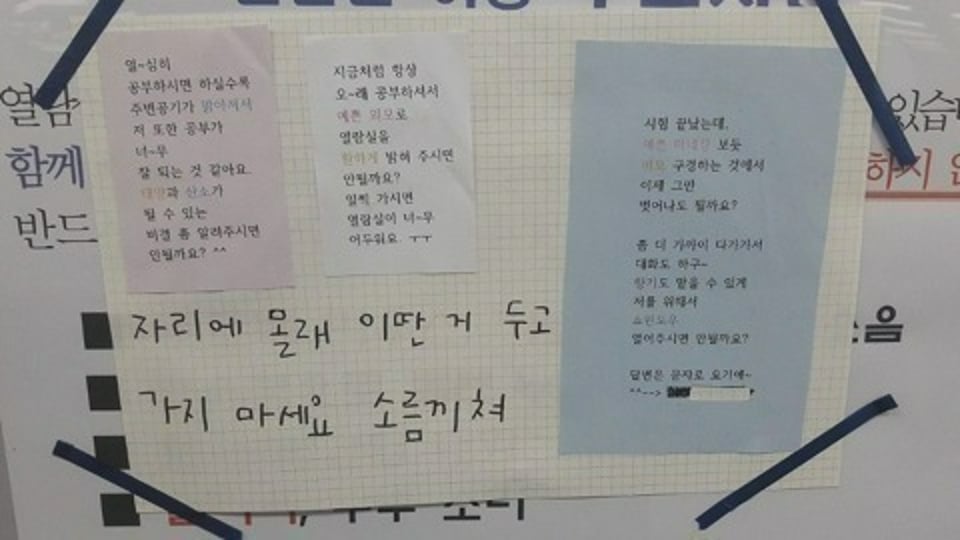 열~심히
공부하시면 하실수록
주변공기가 맑아져서
저 또한 공부가
너~무
잘 되는 것 같아요.
태양과 산소가
될 수 있는
비결 좀 알려주시면
안될까요? ^^
지금처럼 항상
오~래 공부하셔서
예쁜 외모로
열람실을
환하게 밝혀 주시면
안될까요?
일찍 가시면
열람실이 너~무
어두워요. ㅜㅜ
시험 끝났는데,
예쁜 보듯
구경하는 것에서
이제 그만
벗어나도 될까요?
좀 더 가까이 다가가서
대화도 하구~
향기도 맡을 수 있게
저를 위해서
쇼윈도우
열어주시면 안될까요?
답변은 문자로 요기에~
^^-->
자리에 몰래 이딴 거 두고
가지 마세요 소름끼쳐
열람
함께
반드
있습
하지
음
소리